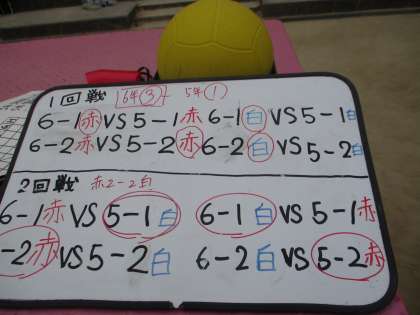 1回戦 6年③ 5年①
6-1赤 VS 5-1赤 6-1白 VS 5-1白
6-2赤 VS 5-2赤 6-2白 VS 5-2白
2回戦 赤2-2白
6-1赤 VS 5-1白 6-1白 VS 5-1赤
-2赤 VS 5-2白 6-2白 VS 5-2赤